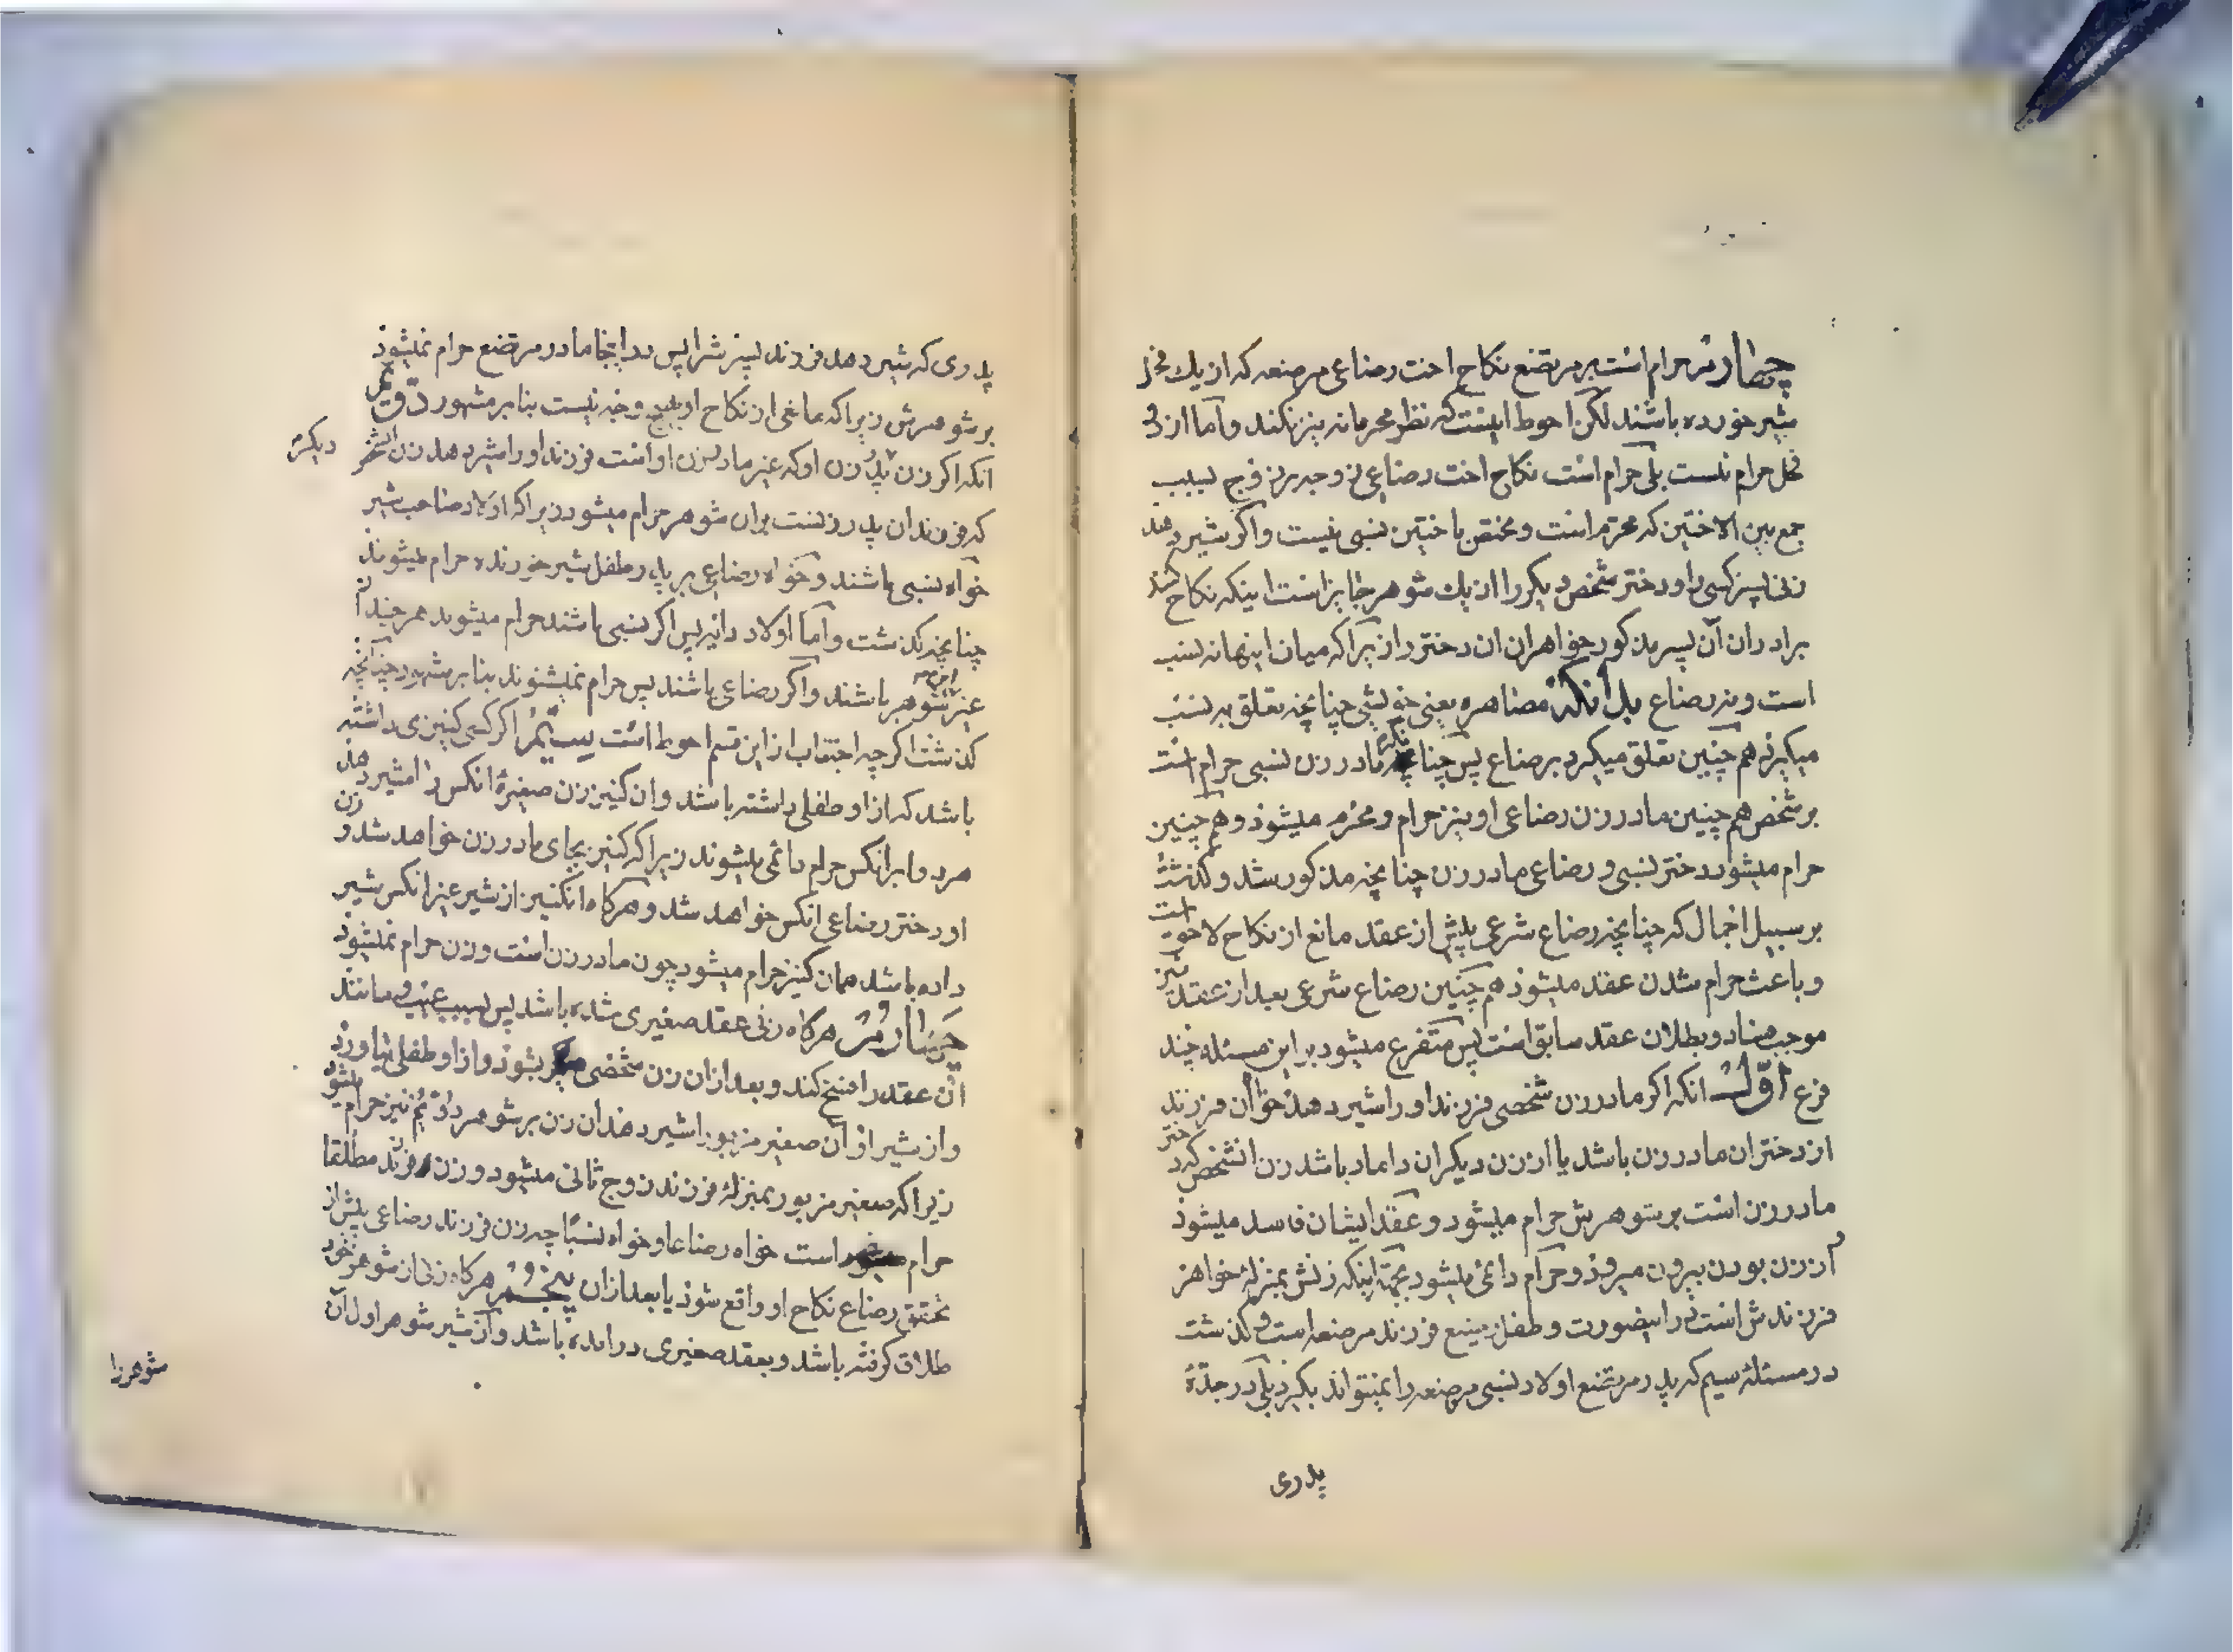 چهارم حرام است بر مرتضع نکاح اخت رضاعی مرضعه که از یک فحل
شیر خورده باشند لکن احوط اینست که نظر محرمانه نیز نکند و اما از دو
فحل حرام نیست بلی حرام است نکاح اخت رضاعی زوجه بر زوج بسبب
جمع بین الاختین که محرم است و مختص باختین نسبی نیست و اگر شیر دهد
زنی پسر کسی را و دختر شخص دیگر را از یک شوهر جایز است اینکه نکاح کند
برادران آن پسر مذکور خواهران ان دختر را زیرا که میان اینها نه نسب
است و نه رضاع بدانکه مصاهره یعنی خویشی چنانچه تعلق به نسب
میگیرد هم چنین تعلق میگیرد برضاع پس چنانکه مادر زن نسبی حرام است
بر شخص هم چنین مادر زن رضاعی او نیز حرام و محرم میشود و هم چنین
حرام میشود دختر نسبی و رضاعی مادر زن چنانچه مذکور شد و گذشت
بر سبیل اجمال که چنانچه رضاع شرعی پیش از عقد مانع از نکاح لاحق است
و باعث حرام شدن عقد میشود هم چنین رضاع شرعی بعد از عقد نیز
موجب فساد و بطلان عقد سابق است پس متفرع میشود بر این مسئله چند
فرع اول انکه اگر مادر زن شخصی فرزند او را شیر دهد خواه آن فرزند
از دختران مادر زن باشد یا از زن دیگر ان داماد باشد زن انشخص که دختر
مادر زن است بر شوهرش حرام میشود و عقد ایشان فاسد میشود
از زن بودن بیرون میرود و حرام دائمی میشود بجهة اینکه زنش بمنزله خواهر
فرزندش است در اینصورت و طفل رضیع فرزند مرضعه است و گذشت
در مسئله سیم که پدر مرتضع اولاد نسبی مرضعه را نمیتواند بگیرد بلی در جدّهٔ
پدری
پدری که شیر دهد فرزند پسرش را پس در اینجا مادر مرتضع حرام نمیشود
بر شوهرش زیرا که مانعی از نکاح او بهیچ وجه نیست بنابر مشهور دوّم
انکه اگر زن پدر زن او که غیر مادر زن او است فرزند او را شیر دهد زن انشخص دیگر
که فرزندان پدر زنست بران شوهر حرام میشود زیرا که اولاد صاحب شیر
خواه نسبی باشند و خواه رضاعی بر پدر طفل شیر خورنده حرام میشوند
چنانچه گذشت و اما اولاد دایه پس اگر نسبی باشند حرام میشوند هر چند از
غیر شوهر باشند و اگر رضاعی باشند پس حرام نمیشوند بنابر مشهور چنانچه
گذشت اگر چه اجتناب از این قسم احوط است سیّم اگر کسی کنیزی داشته
باشد که از او طفلی داشته باشد و ان کنیز زن صغیرهٔ انکس را شیر دهد
هر دو بر انکس حرام دائمی میشوند زیرا که کنیز بجای مادر زن خواهد شد و زن
او دختر رضاعی انکس خواهد شد و هرگاه انکنیز از شیر غیر انکس شیر
داده باشد همان کنیز حرام میشود چون مادر زن است و زن حرام نمیشود
چهارم هرگاه زنی عقد صغیری شده باشد پس بسبب عیب و مانند
آن عقد را فسخ کند و بعد از ان زن شخصی دیگر بشود و از او طفلی بیاورد
و از شیر او آن صغیر مزبور را شیر دهد ان زن بر شوهر دوّیم نیز حرام میشود
زیرا که صغیر مزبور بمنزلهٔ فرزند زوج ثانی میشود و زن فرزند مطلقا
حرام است خواه رضاعا و خواه نسبًا چه زن فرزند رضاعی پیش از
تحقق رضاع نکاح او واقع شود یا بعد از ان پنجم هرگاه زنی از شوهر خود
طلاق گرفته باشد و بعقد صغیری در امده باشد و از شیر شوهر اول آن
شوهر را